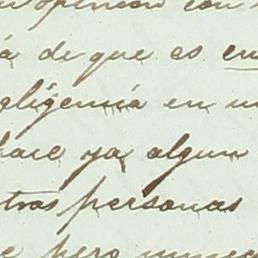 opinion con
á de que es en
eligencia en u
hace ya algun
tras personas
e pero